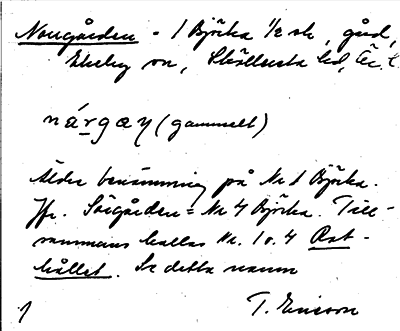 Norrgården - 1 Björka 1/2 sk, gård,
Ekeby sn, Sköllersta hd, Ör. l.
nárgæɳ (gammalt)
Äldre benämning på Nr 1 Björka.
Jfr. Sörgården = Nr 4 Björka. Till-
sammans kallas Nr. 1 o. 4 Rot-
hållet. Se detta namn
T. Ericson